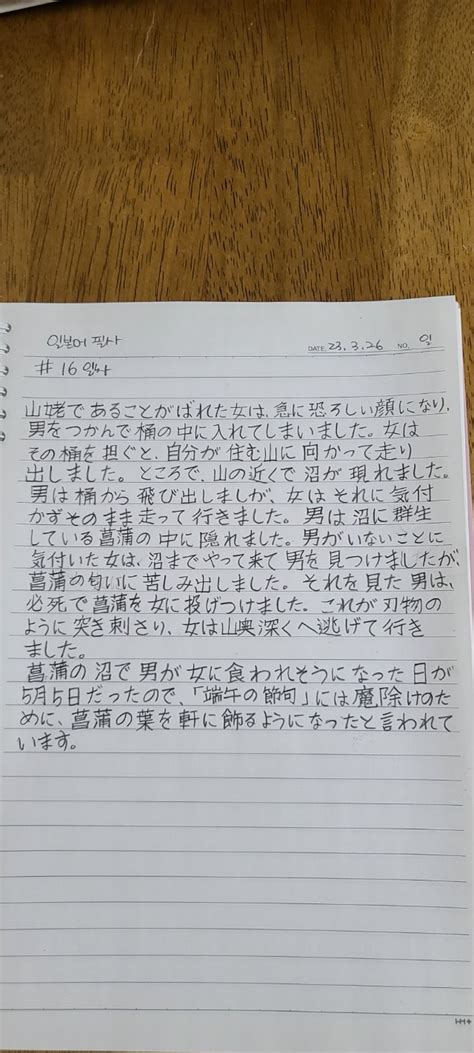 일본어 필사
DATE. 23. 3. 26 NO. 일
# 16 일차
山姥であることがばれた女は、急に恐ろしい顔になり、
男をつかんで桶の中に入れてしまいました。女は
その桶を担ぐと、自分が住む山に向かって走り
出しました。ところで、山の近くで沼が現れました。
男は桶から飛び出しましが、女はそれに気付
かずそのまま走って行きました。男は沼に群生
している菖蒲の中に隠れました。男がいないことに
気付いた女は、沼までやって来て男を見つけましたが、
菖蒲の匂いに苦しみ出しました。それを見た男は、
必死で菖蒲を女に投げつけました。これが刃物の
ように突き刺さり、女は山奥深くへ逃げて行き
ました。
菖蒲の沼で男が女に食われそうになった日が
5月5日だったので、「端午の節句」には魔除けのた
めに、菖蒲の葉を軒に飾るようになったと言われて
います。